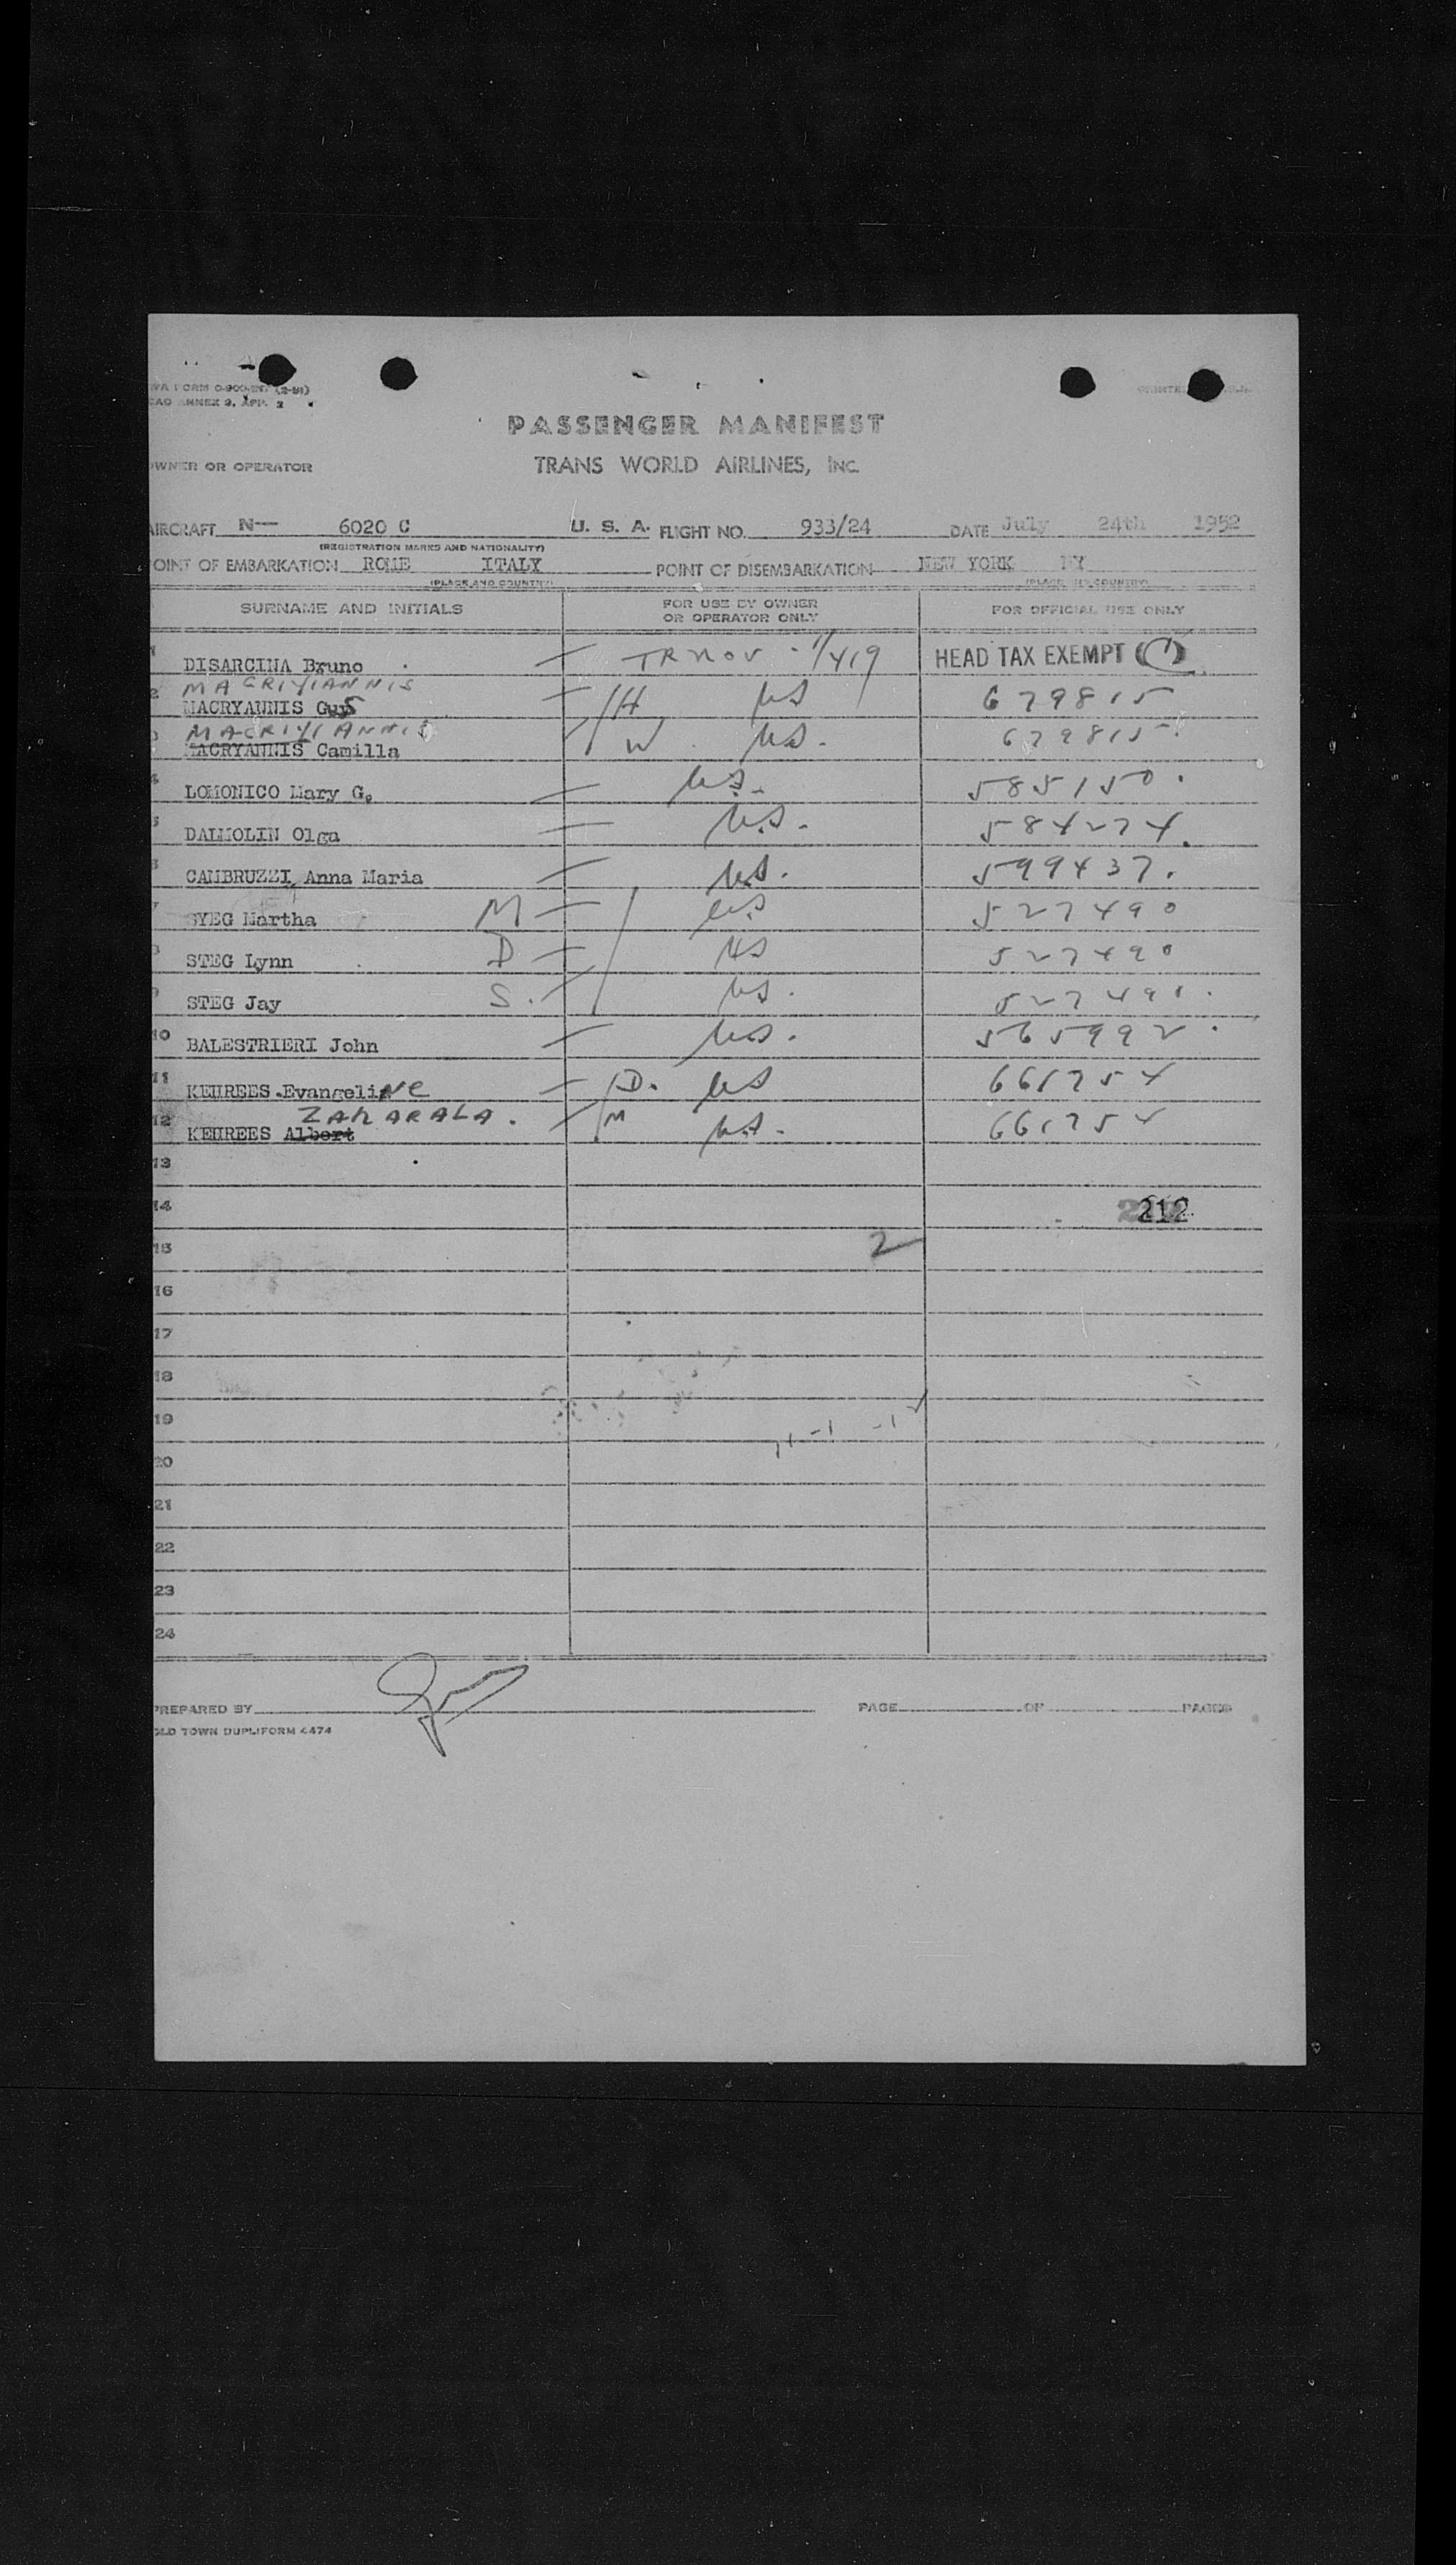 PASSENGER MANIFEST
OWNER OR OPERATOR TRANS WORLD AIRLINES, INC.
AIRCRAFT N— 6020 C U. S. A. FLIGHT NO. 933/24 DATE July 24th 1952
(REGISTRATION MARKS AND NATIONALITY)
POINT OF EMBARKATION ROME ITALY POINT OF DISEMBARKATION NEW YORK NY
(PLACE AND COUNTRY) (PLACE AND COUNTRY)
SURNAME AND INITIALS FOR USE BY OWNER OR OPERATOR ONLY FOR OFFICIAL USE ONLY
1 DISARCINA Bruno HEAD TAX EXEMPT (1)
MACRIYIANNIS
2 MACRYANNIS Gus H US 679815
MACRIYIANNIS
3 MACRYANNIS Camilla W US. 679815
4 LOMONICO Mary G. US. 585150.
5 DALMOLIN Olga U.S. 584274.
6 CAMBRUZZI, Anna Maria U.S. 599437.
7 SYEG Martha M US 527490
8 STEG Lynn D US 527490
9 STEG Jay S. US. 527490.
10 BALESTRIERI John U.S. 565992.
11 KEHREES Evangeline D. US 661754
ZAHARALA.
12 KEHREES Albert M U.S. 661754
13
14 212
15 2
16
17
18
19
20
21
22
23
24
PREPARED BY PAGE OF PAGES
OLD TOWN DUPLIFORM 4474